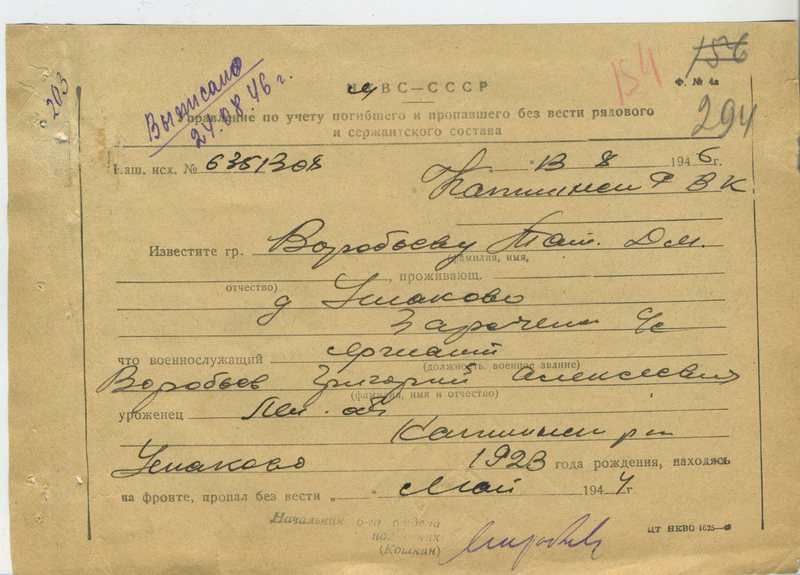 154 156
Выписано
24.08.46 г.
203
ВС—СССР
Ф. № 4а
294
правление по учету погибшего и пропавшего без вести рядового
и сержантского состава
Наш. исх. № 6351308 13 8 1946 г.
РВК
Известите гр. Воробьеву Тат. Дм.
(фамилия, имя,
отчество) , проживающ.
д Ушаково
что военнослужащий сержант
(должность, военное звание)
Воробьев Григорий Алексеевич
(фамилия, имя и отчество)
уроженец Лен. об
Ушаково 1923 года рождения, находясь
на фронте, пропал без вести май 1944 г.
Начальник 6-го отдела
полковник
(Кошкин)
ЦТ НКВО 1625